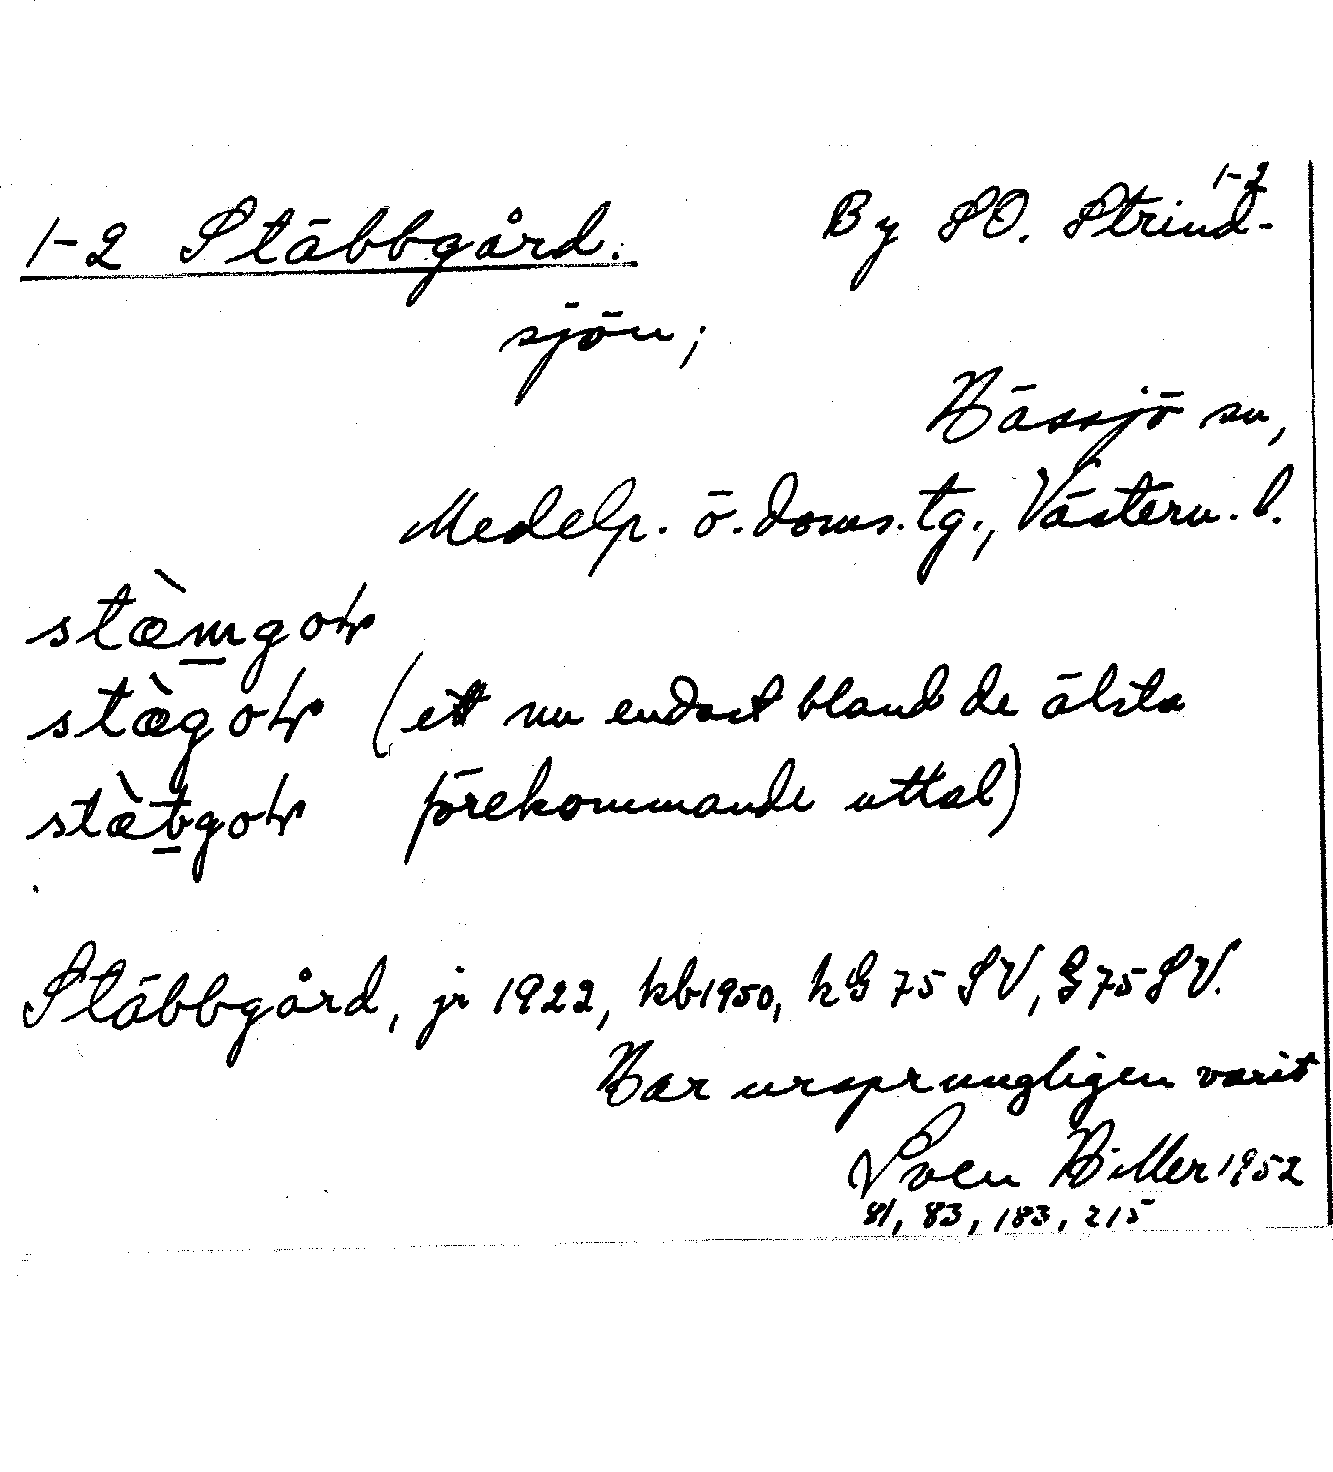 1-2 Stäbbgård. By SO. Strind-
1-2
sjön;
Hässjö sn,
Medelp. ö. doms. tg., Västern. l.
(ett nu endast bland de älsta
förekommande uttal)
Stäbbgård, jr 1922, kb 1950, hG 75 SV, G 75 SV.
Har ursprungligen varit
Sven Hiller 1952
81, 83, 183, 215